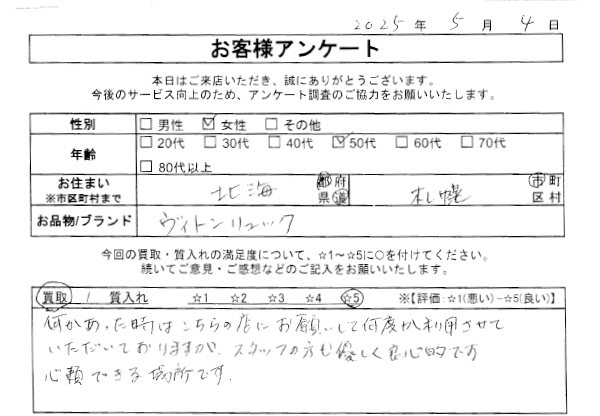 2025 年 5 月 4 日
お客様アンケート
本日はご来店いただき、誠にありがとうございます。
今後のサービス向上のため、アンケート調査のご協力をお願いいたします。
性別 □ 男性 ☑ 女性 □ その他
年齢 □ 20代 □ 30代 □ 40代 ☑ 50代 □ 60代 □ 70代
□ 80代以上
お住まい
※市区町村まで 北海 都府県道 札幌 市町区村
お品物/ブランド ヴィトンリュック
今回の買取・質入れの満足度について、☆1～☆5に○を付けてください。
続いてご意見・ご感想などのご記入をお願いいたします。
買取 / 質入れ ☆1 ☆2 ☆3 ☆4 ☆5 ※【評価:☆1(悪い)−☆5(良い)】
何かあった時はこちらの店にお願いして何度か利用させて
いただいておりますが、スタッフの方も優しく良心的です
心頼できる場所です.